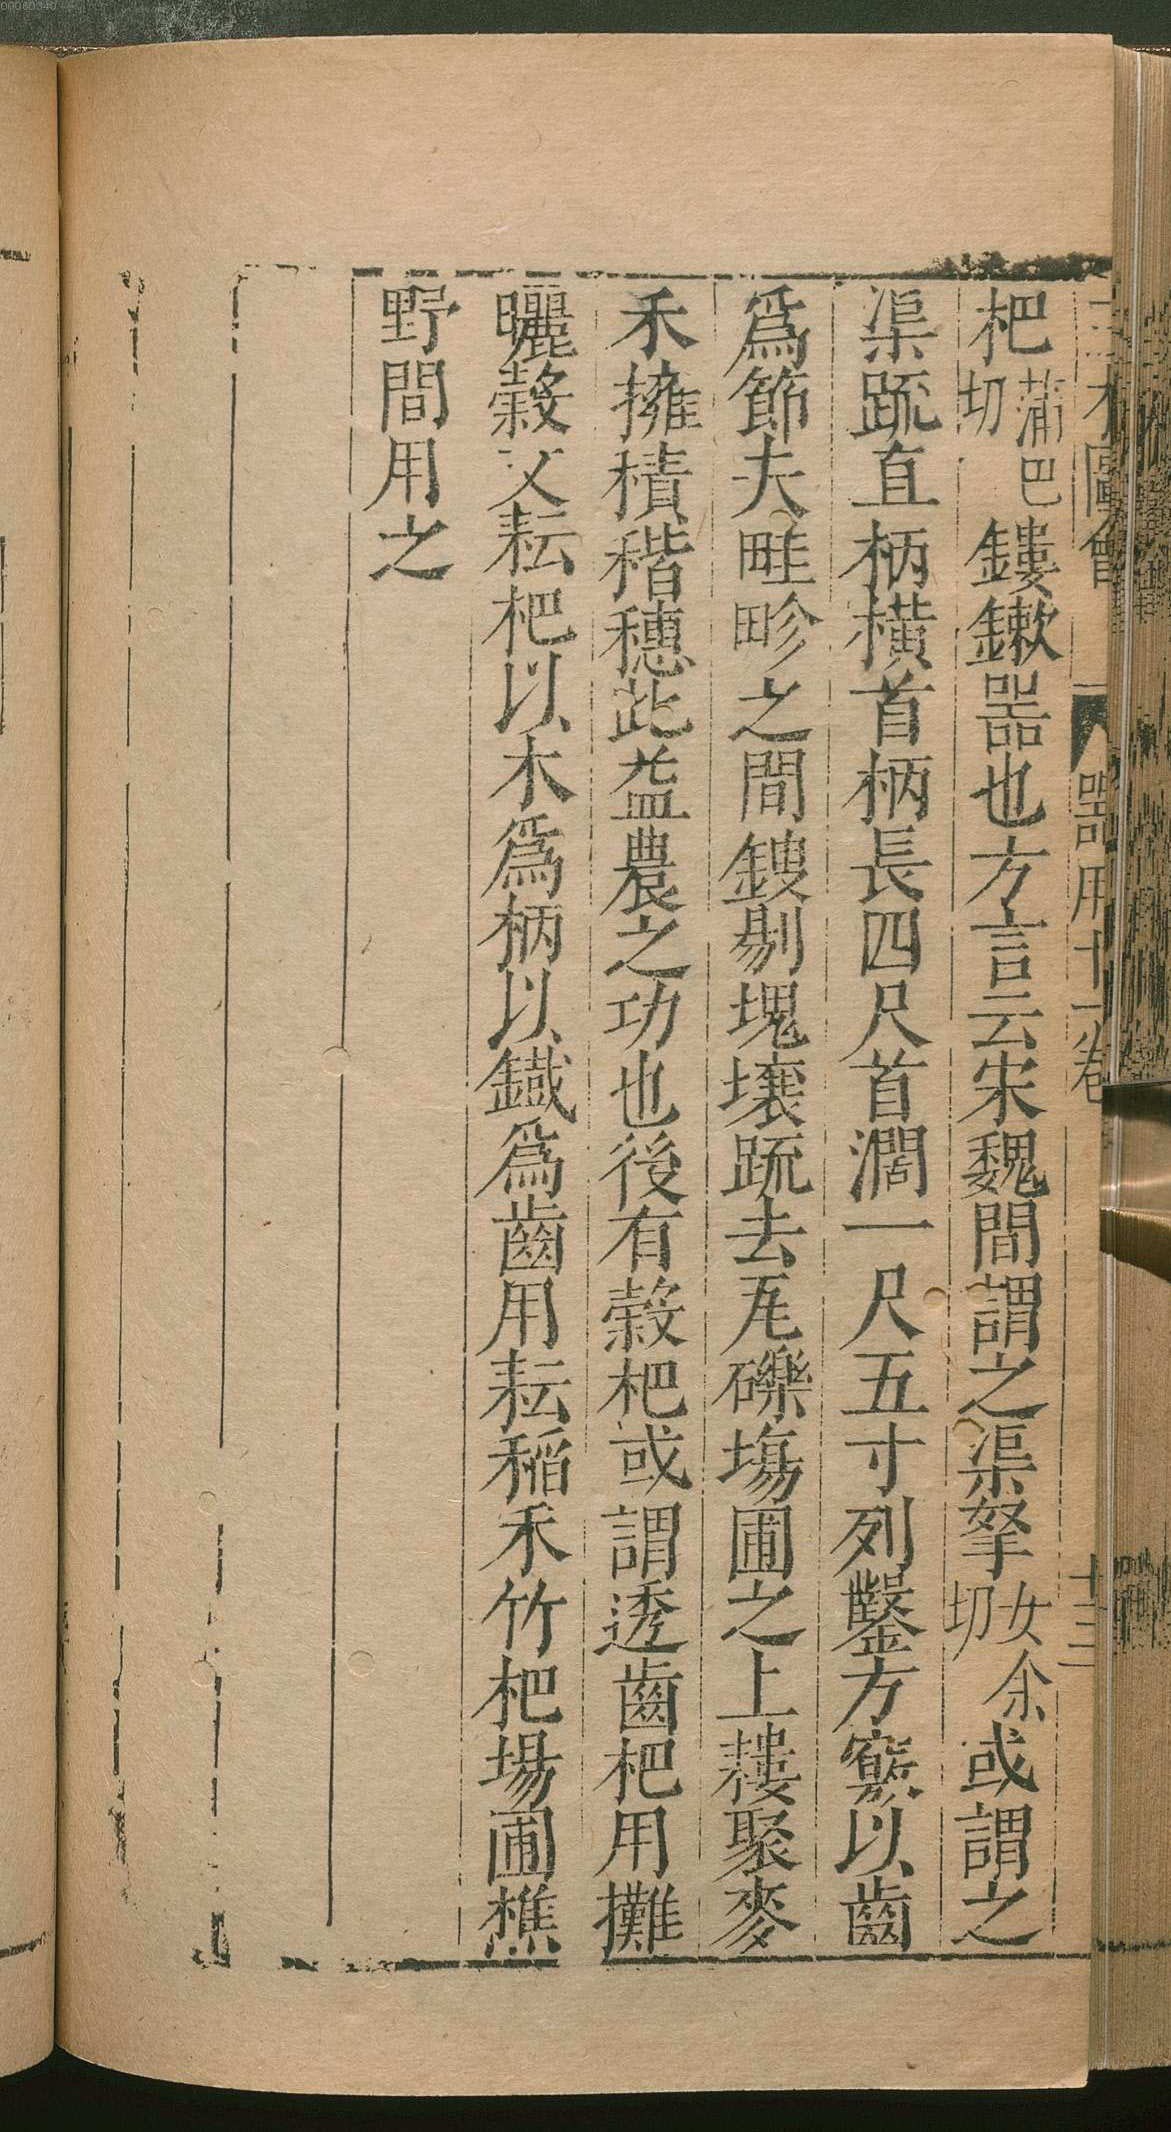 三才圖會 器用十一卷 十三
杷蒲巴切鏤鏉器也方言云宋魏間謂之渠挐女余切或謂之
渠䟽直柄橫首柄長四尺首濶一尺五寸列鑿方竅以齒
爲節夫畦畛之間鎪剔塊壤䟽去瓦礫塲圃之上耬聚麥
禾擁積稭穗此益農之功也後有穀杷或謂透齒杷用攤
曬穀又耘杷以木爲柄以鐵爲齒用耘稻禾竹杷場圃樵
野間用之
00000340